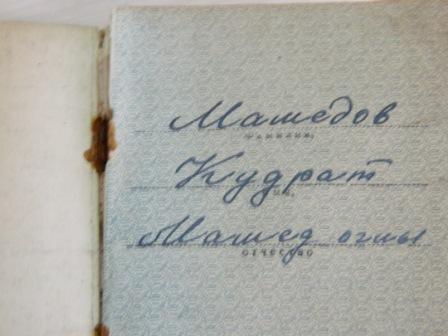 Машедов
фамилия,
Кудрат
имя,
Машед оглы
отчество